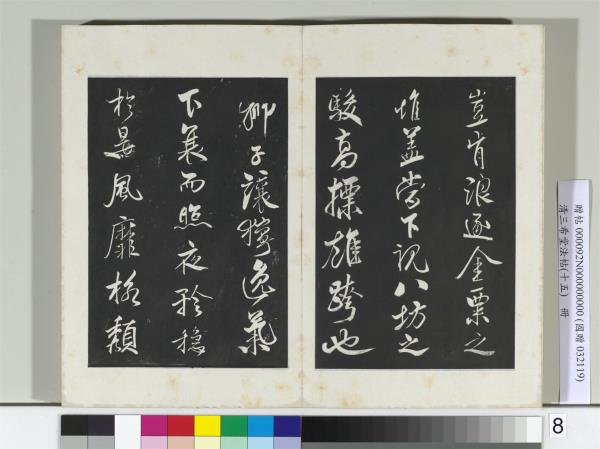 豈肯浪逐金粟之
堆盖當下視八坊之
駿高摽雄跨也
獅子讓獰逸氣
下衰而照夜矜穩
於是風靡格頹
贈帖 000092N000000000 (國贈 032119)
清三希堂法帖(十五) 冊
8